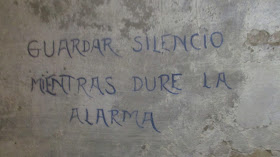 GUARDAR SILENCIO
MIENTRAS DURE LA
ALARMA